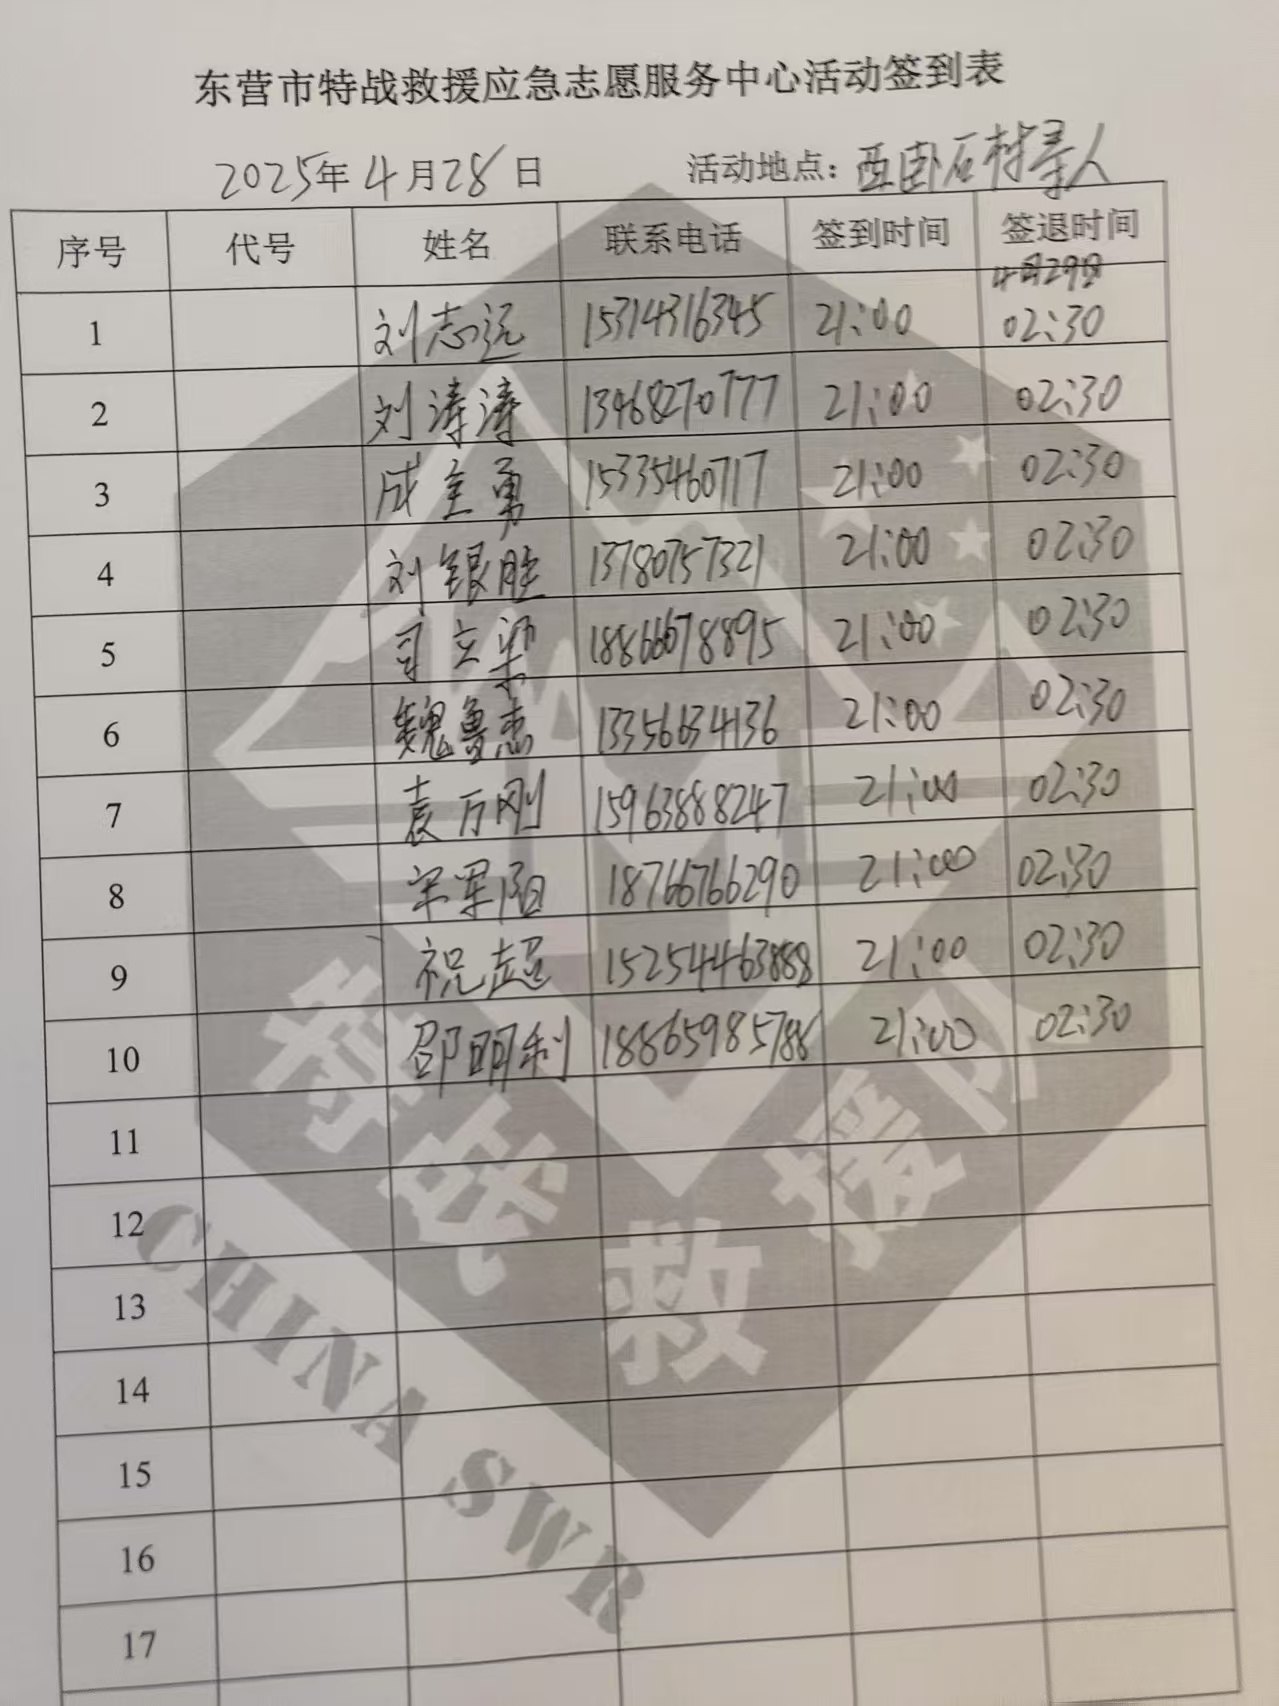 东营市特战救援应急志愿服务中心活动签到表
2025年4月28日 活动地点：西卧石村寻人
序号 代号 姓名 联系电话 签到时间 签退时间
4月29日
1 刘志远 15314316345 21:00 02:30
2 刘涛涛 13468270777 21:00 02:30
3 成全勇 15335460717 21:00 02:30
4 刘银胜 13780757321 21:00 02:30
5 司立梁 18866678895 21:00 02:30
6 魏鲁杰 13356634136 21:00 02:30
7 袁万刚 15963888247 21:00 02:30
8 宋军阳 18766766290 21:00 02:30
9 祝超 15254463888 21:00 02:30
10 邵明利 18865985788 21:00 02:30
11
12
13
14
15
16
17
特战救援队
CHINA SWR